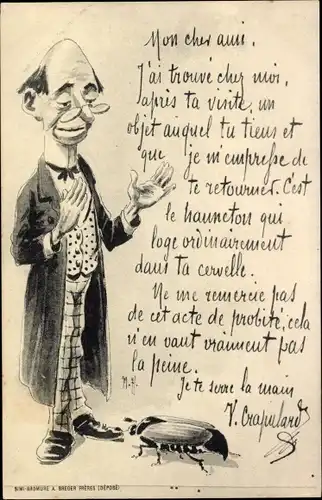 Mon cher ami.
J'ai trouvé chez moi,
après ta visite, un
objet auquel tu tiens et
que je m'empresse de
te retourner. C'est
le hanneton qui
loge ordinairement
dans ta cervelle.
Ne me remercie pas
de cet acte de probité, cela
n'en vaut vraiment pas
la peine.
Je te serre la main
V. Crapulard
SIMI-BROMURE A. BREGER FRÈRES (DÉPOSÉ)